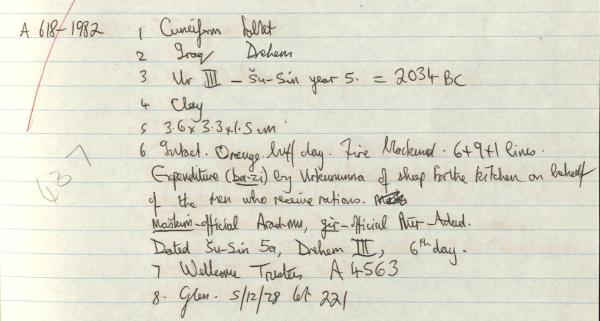 A 618-1982 1 Cuneiform tablet
2 Iraq/ Drehem
3 Ur III - Šu-Sin year 5. = 2034 BC
4 Clay
5 3.6 x 3.3 x 1.5 cm
6 Intact. Orange buff clay. Fire blackened. 6+9+1 lines.
Expenditure (ba-zi) by Urkununna of sheep for the kitchen on behalf
of the men who receive rations.
Maškim-official Arad-mu, gìr-official Puzur-Adad.
Dated Šu-Sin 5a, Drehem III, 6th day.
7 Wellcome Trustees A 4563
8. Glen. 5/12/28 lot 221